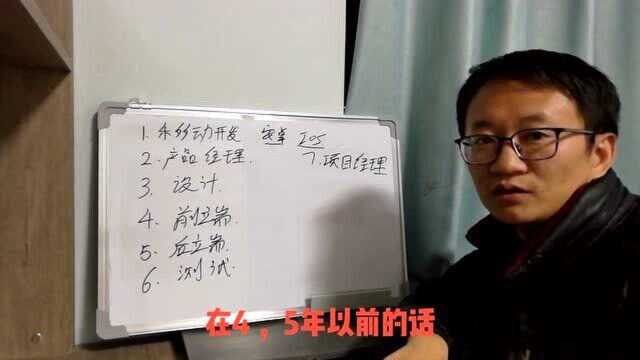 1. 移动开发 安卓 IOS
2. 产品经理.
7. 项目经理
3. 设计.
4. 前端
5. 后端.
6. 测试.
在4，5年以前的话